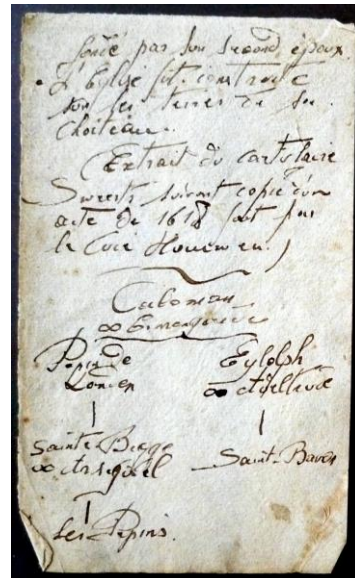 fondé par son second époux.
L'église fut construite
sur les terres de son
Chateau.
(Extrait du cartulaire
Sweerts suivant copie d'un
acte de 1618 fait par
le Curé )
Caloman
∞
Pepin de
Landen
∞ Adeltrude
Sainte Begge
∞ Ansegisel
Saint-Bavon
Les Pepins.